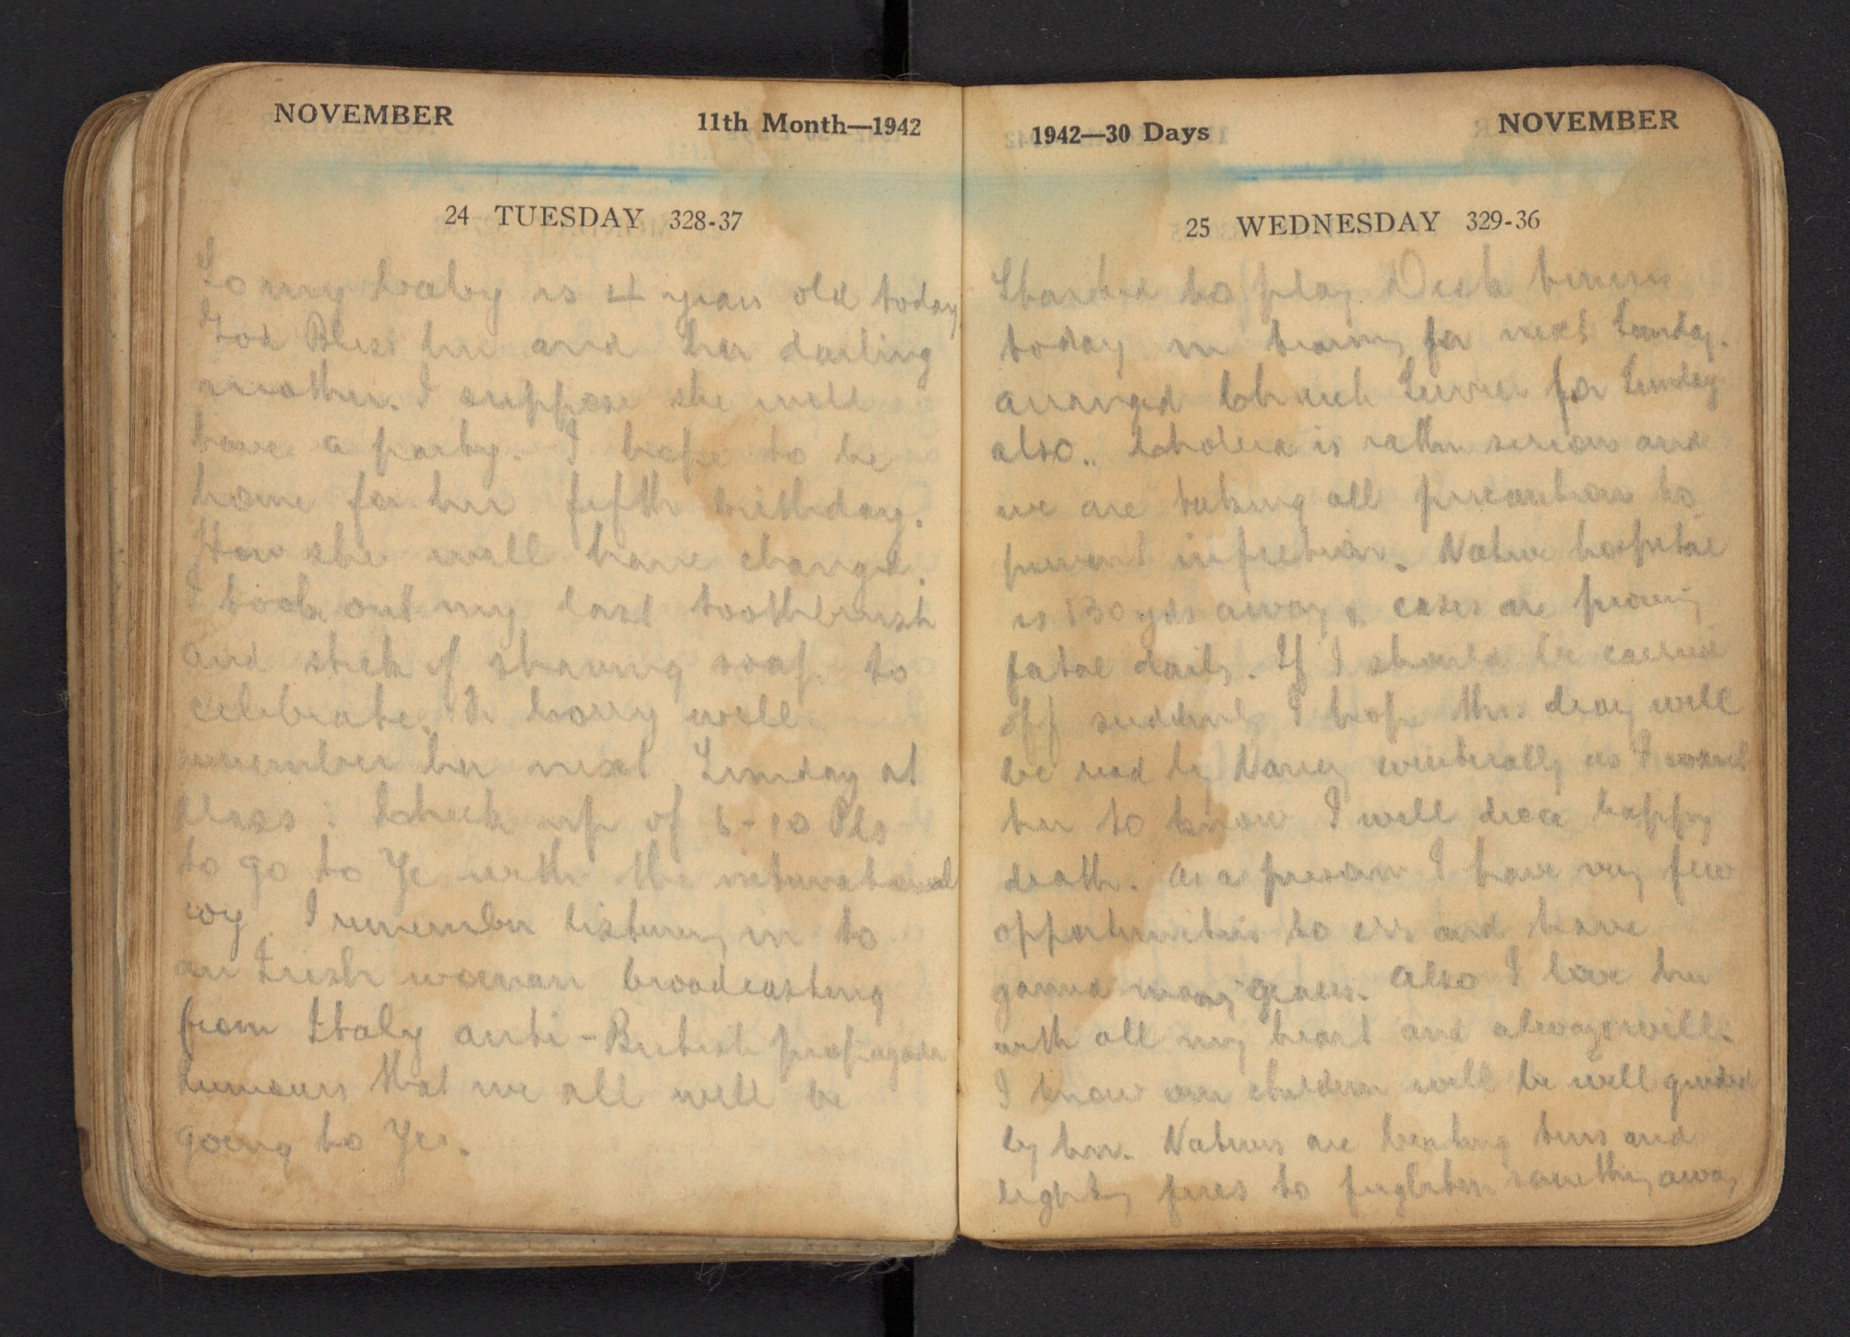 NOVEMBER 11th Month—1942
24 TUESDAY 328-37
So my baby is 4 years old today
God Bless her and her darling
mother. I suppose she will
have a party. I hope to be
home for her fifth birthday.
How she will have changed.
I took out my last toothbrush
and stick of shaving soap to
celebrate. Fr Corry will
remember her next Sunday at
Mass. Check up of 6-10 Pls
to go to Ye with the
coy. I remember listening in to
an Irish woman broadcasting
from Italy anti-British propaganda
Rumours that we all will be
going to Ye.
1942—30 Days NOVEMBER
25 WEDNESDAY 329-36
Started to play Deck tennis
today in training for next Sunday.
arranged Church Service for Sunday
also.. Cholera is rather serious and
we are taking all precautions to
prevent infection. Native hospital
is 130 yds away & cases are proving
fatal daily. If I should be carried
off suddenly I hope this diary will
be read by Nancy eventually as I want
her to know I will die a happy
death. As a prisoner I have very few
opportunities to err and have
gained many graces. Also I love her
with all my heart and always will.
I know our children will be well guided
by her. Natives are beating tins and
lighting fires to frighten something away